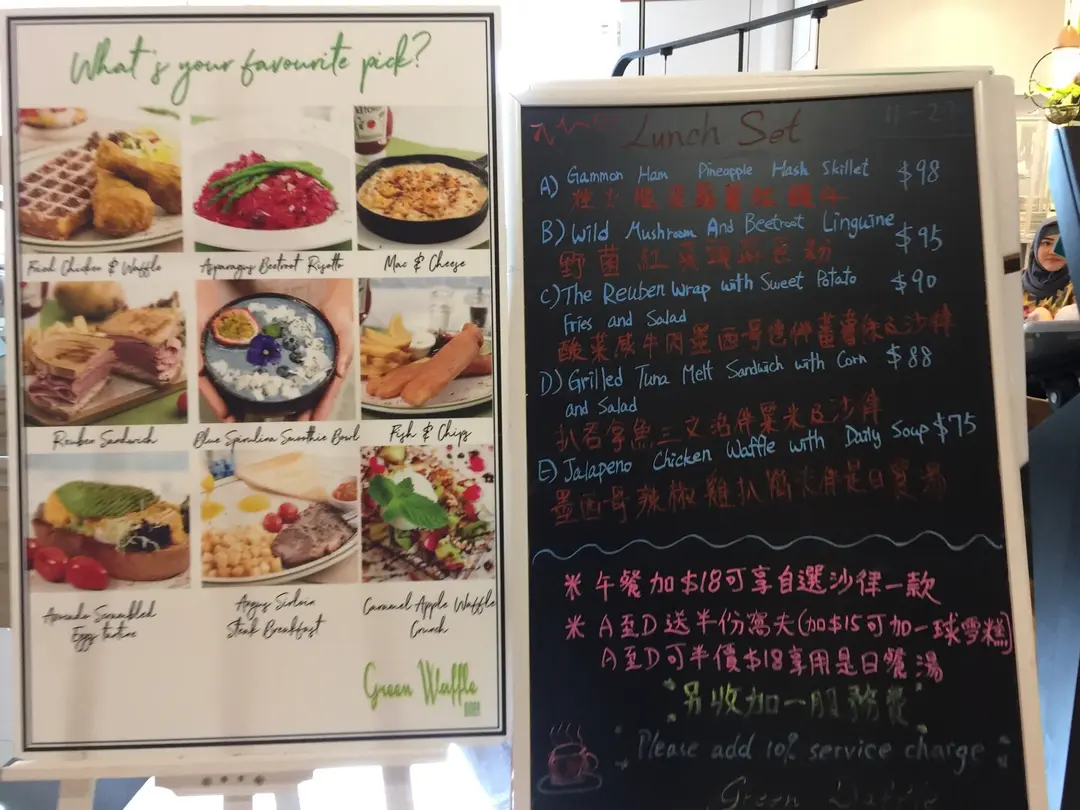 What's your favourite pick?
Fried Chicken & Waffle
Asparagus Beetroot Risotto
Mac & Cheese
Reuben Sandwich
Blue Spirulina Smoothie Bowl
Fish & Chips
Avocado Scrambled
Eggs tartine
Angus Sirloin
Steak Breakfast
Caramel Apple Waffle
Crunch
Green Waffle
Lunch Set
A) Gammon Ham Pineapple Hash Skillet $98
B) Wild Mushroom And Beetroot Linguine $95
野菌紅菜頭扁意粉
C) The Reuben Wrap with Sweet Potato $90
Fries and Salad
酸菜咸牛肉墨西哥卷伴薯條及沙律
D) Grilled Tuna Melt Sandwich with Corn $88
and Salad
扒吞拿魚三文治伴粟米及沙律
E) Jalapeno Chicken Waffle with Daily Soup $75
墨西哥辣椒雞扒窩夫伴是日餐湯
* 午餐加$18可享自選沙律一款
* A至D送半份窩夫(加$15可加一球雪糕)
A至D可半價$18享用是日餐湯
另收加一服務費
Please add 10% service charge
Green